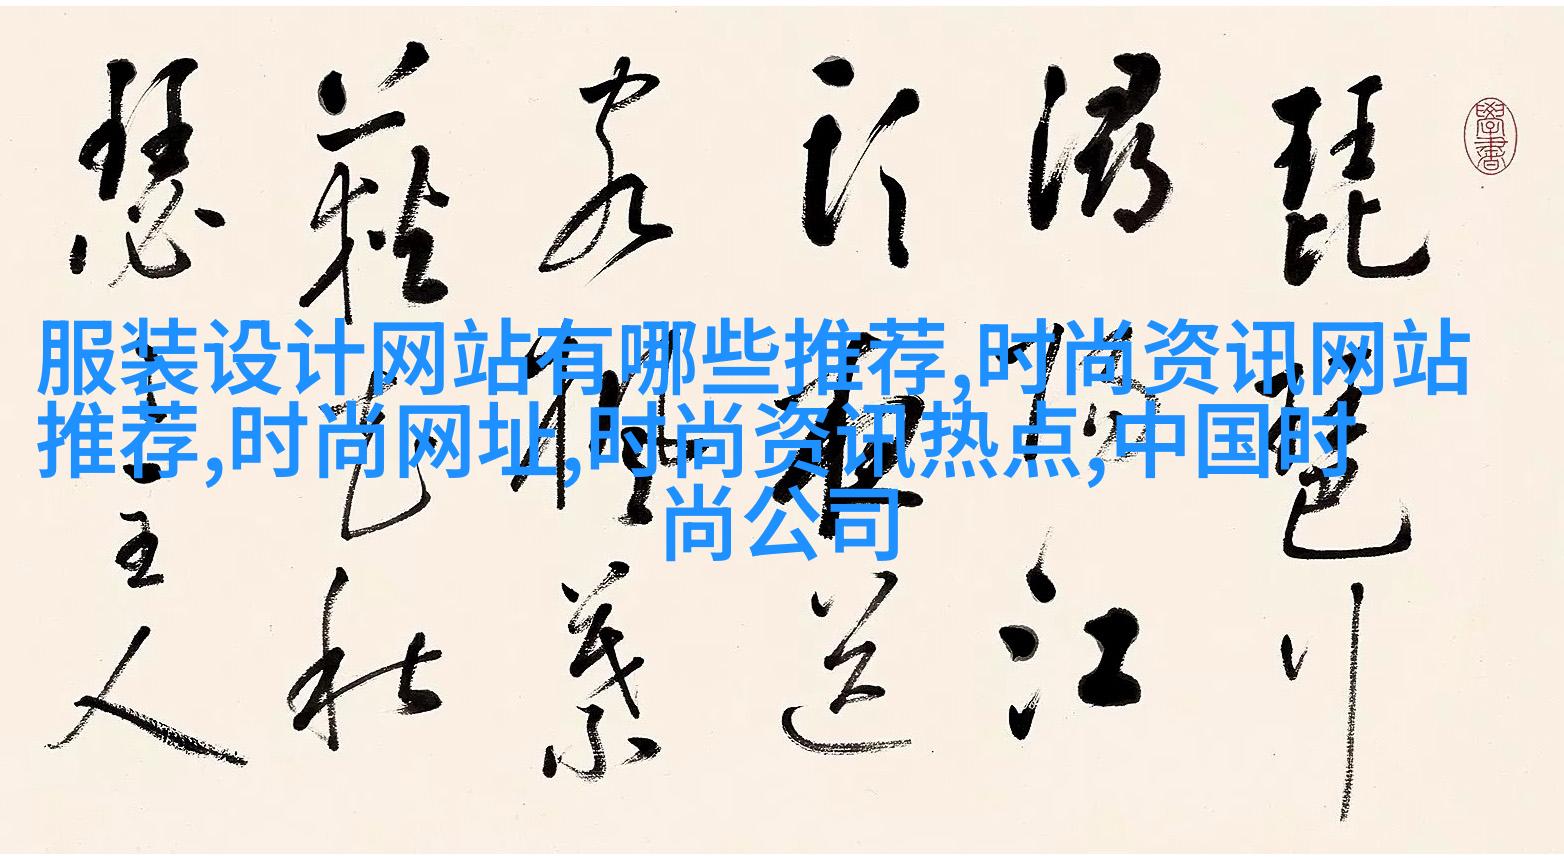 服装设计网站有哪些推荐,时尚资讯网站
推荐,时尚网址,时尚资讯热点,中国时
尚公司
學書
琵琶行
潯陽江
頭夜送
客楓葉
荻花秋
瑟主人